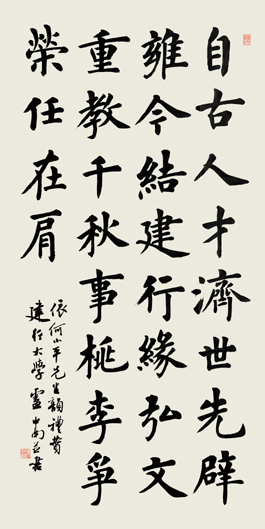 自古人才濟世先辟
雍今結建行緣弘文
重教千秋事桃李爭
榮任在肩
依何小平先生韻禮贊
建行大學